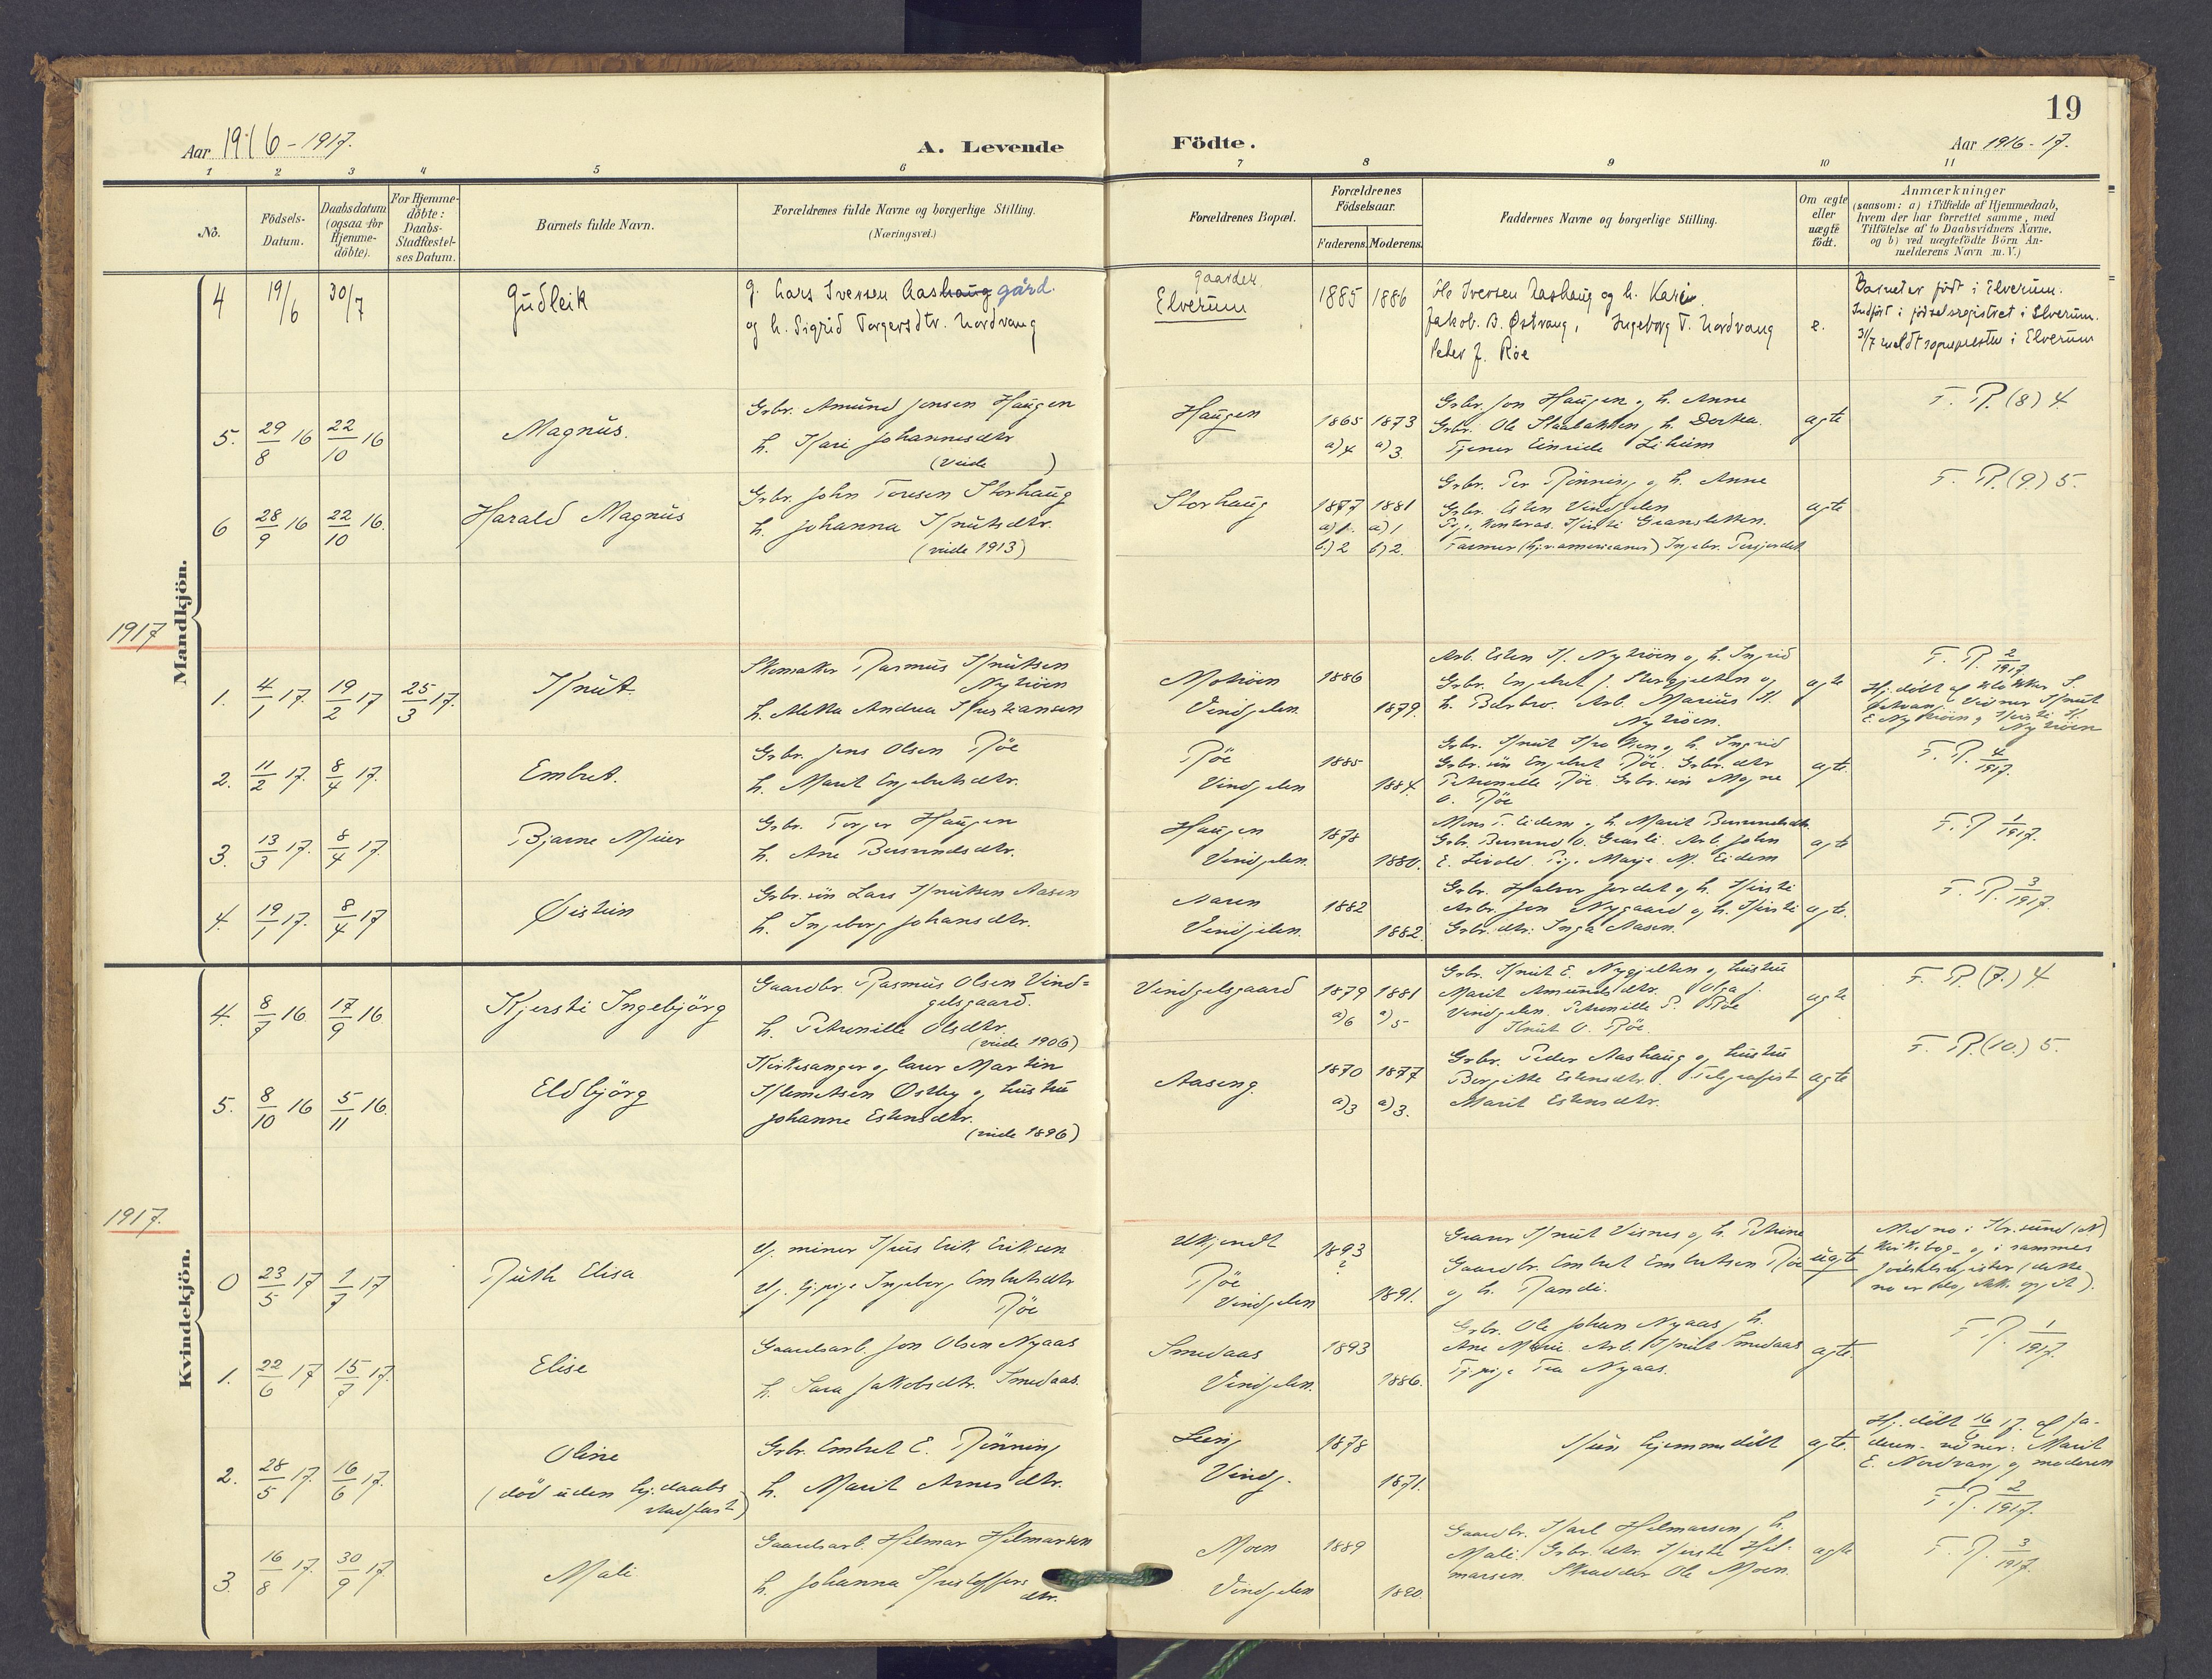 19
Aar 1916-1917.
A. Levende
Födte.
Aar 1916-17.
1 2 3 4 5 6 7 8 9 10 11
No.
Födsels-
Datum.
Daabsdatum
(ogsaa för
Hjemme-
döbte).
For Hjemme-
döbte:
Daabs-
Stadfæstel-
ses Datum.
Barnets fulde Navn.
Forældrenes fulde Navne og borgerlige Stilling.
(Næringsvei.)
Forældrenes Bopæl.
Forældrenes
Födselsaar.
Faderens. Moderens.
Faddernes Navne og borgerlige Stilling.
Om ægte
eller
uægte
født.
Anmærkninger
(saasom: a) i Tilfælde af Hjemmedaab,
hvem der har forrettet samme, med
Tilföielse af to Daabsvidners Navne.
og b) ved uægtefödte Börn An-
melderens Navn m.V.)
Mandkjön.
4
19/6
30/7
Gudleik
g. Lars Iversen Aashaug gård.
og h. Sigrid Torgersdtr. Nordvang
gaarden
Elverum
1885 1886
Ole Iversen Aashaug og h. Kari.
Jakob. B. Østvang, Ingeborg T. Nordvang
Peder J. Røe
e.
Barnet er født i Elverum.
Indført i fødselsregistret i Elverum.
31/7 meldt sognepresten i Elverum
5. 29/8 16 22/10 16
Magnus.
Grbr. Amund Jonsen Haugen
h. Kari Johannesdtr
(vide )
Haugen
1865 1873
a) 4 a) 3.
Grbr. Jon Haugen og h. Anne
Grbr. Ole h. Dortea.
Tjener Einride
ægte
F. R. (8) 4.
6 28/9 16 22/10 16.
Harald Magnus
Grbr. John Toresen Storhaug
h. Johanna Knutsdtr.
(vide 1913)
Storhaug
1877 1881
a) 1. a) 1
b.) 2 b) 2.
Grbr. Per Rønning og h. Anne
Grbr. Esten Vindgelen
Farmer (hj.v. americaner) Ingebr.
ægte
F. R. (9.) 5.
1917
1. 4/1 17. 19/2 17 25/3 17.
Knut.
Skomaker Rasmus Knutsen
Nytrøen
h. Metta Andrea Kristiansen
Motrøen
Vindgelen.
1886
1879.
Arb. Esten K. Nytrøen og h. Ingrid
Grbr. Engebret J. og
h. Barbro. Arb. Marius K.
Nytrøen.
ægte
F. R. 2/1917.
Hj. døbt af Klokker
Vidner Knut
E. Nytrøen og Kirsti K.
Nytrøen
2. 11/2 17. 8/4 17.
Embret.
Grbr. Jens Olsen Røe
h. Marit Engebretsdtr.
Røe
Vindgelen
1885
1884.
Grbr. Knut og h. Ingrid
Grbr. søn Engebret Røe. Grbr. dtr
Petronelle Røe. Grbr. søn Magne
O. Røe
ægte.
F. R. 4/1917.
3. 13/3 17. 8/4 17.
Bjarne Meier
Grbr. Torger Haugen
h. Ane Bersvendsdtr.
Haugen
Vindgelen.
1878
1880.
Mons T. Eidem og h. Marit Bersvendsdtr.
Grbr. Bersvend O. Arb. John
E. Pige Marje M. Eidem
ægte
F. R. 1/1917.
4. 19/1 17. 8/4 17
Øistein
Grbr. søn Lars Knutsen Aasen
h. Ingeborg Johansdtr.
Aasen
Vindgelen.
1882
1882.
Grbr. Halvor Jordet og h. Kirsti
Arbr. Jon Nygaard og h. Kirsti
Grbr. dtr. Inga Aasen.
ægte.
F. R. 3/1917.
Kvindekjön.
4. 8/7 16 17/9 16
Kjersti Ingebjörg
Gaardbr. Rasmus Olsen Vind=
gelsgaard.
h. Petronille Olsdtr.
(vide 1906)
Vindgelsgaard
1879 1881
a) 6 a) 5
Grbr. Knut E. Nygjelten og hustru
Marit Amundsdtr. Olga J.
Vindgelen. Petronille P. Røe
Knut O. Røe.
ægte
F. R. (7.) 4
5. 8/10 16 5/11 16.
Eldbjörg
Kirkesanger og lærer Martin
Klemetsen Østby og hustru
Johanne Estensdtr.
(vide 1896)
Aaseng.
1870 1877
a) 3 a) 3.
Grbr. Peder Aashaug og hustru
Bergitte Estensdtr. Telegrafist
Marit Estensdtr.
ægte
F. R. (10.) 5.
1917.
0 23/5 17 1/7 17
Ruth Elisa
Ug. miner Erik Eriksen
Ug. tj.pige Ingeborg Embretsdtr
Røe
Ukjendt
Røe
Vindgelen
1893
?
1891.
Knut Visnes og h. Petrine
Gaardbr. Embret Embretsen Røe
og h. Randi.
uægte
Med no i Kr.sund (N)
Kirkebog og i sammes
fødselsregister (dette
no er dog ikke opgit).
1. 22/6 17 15/7 17.
Elise
Gaardsarb. Jon Olsen Nyaas
h. Sara Jakobsdtr. Smedaas.
Smedaas
Vindgelen.
1893
1886.
Grbr. Ole Johan Nyaas, h.
Ane Marie. Arb. Knut Smedaas
Tj.pige Tea Nyaas.
ægte.
F. R. 1/1917.
2. 28/5 17. 16/6 17.
Oline
(död uden hj.daabs
stadfæst)
Grbr. Embret E. Rønning
h. Marit Arnesdtr.
Vindg.
1878
1871.
Kun hjemmedøbt
ægte.
Hj. døbt 16/6 17. af fa-
deren. vidner: Marit
E. Nordvang og moderen
F. R. 2/1917.
3. 16/8 17. 30/9 17
Mali
Gaardsarb. Hilmar Hilmarsen
h. Johanna Kristoffers
dtr.
Moen
Vindgelen
1889
1890.
Gaardbr. Karl Hilmarsen, h.
Mali. Grbr. dtr. Kirsti Hil-
marsen. Skrædder Ole Moen.
ægte
F. R. 3/1917.